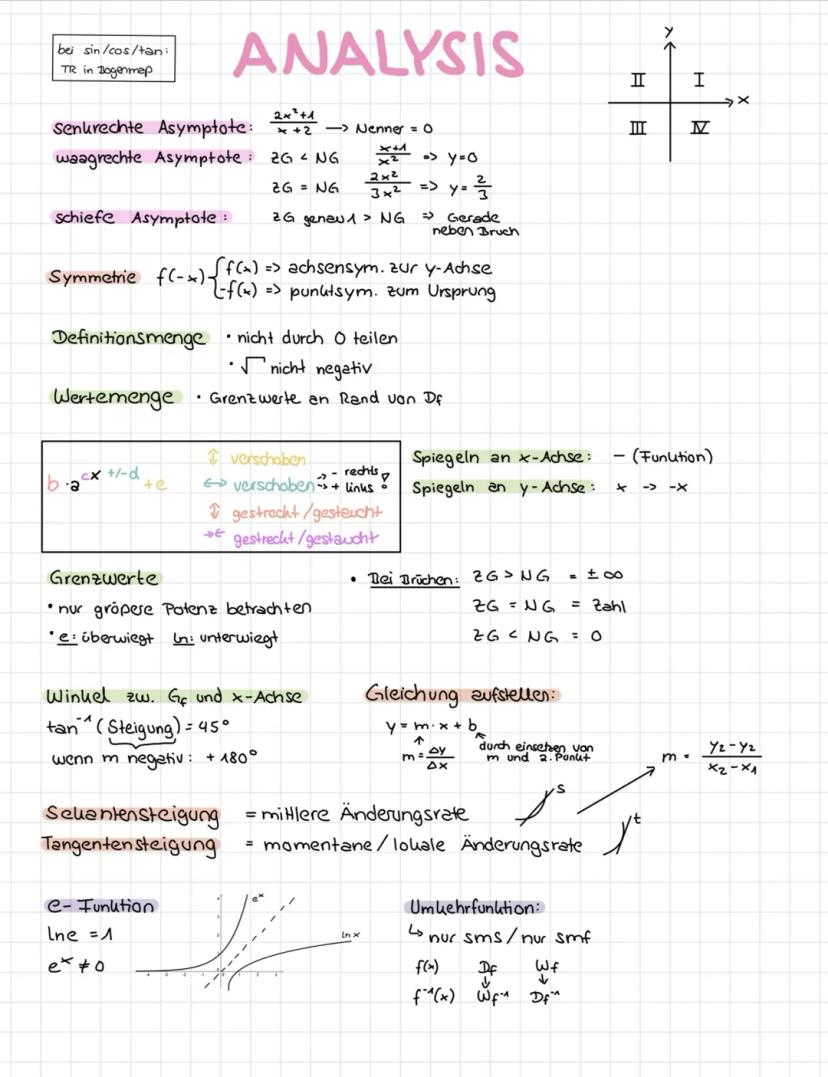 bei sin/cos/tan:
TR in Bogenmaß
ANALYSIS
y
x
II I
III IV
senkrechte Asymptote: (2x²+1)/(x+2) → Nenner = 0
waagrechte Asymptote: ZG < NG (x+1)/x² => y=0
ZG = NG 2x²/3x² => y = 2/3
schiefe Asymptote: ZG genau 1 > NG => Gerade
neben Bruch
Symmetrie f(-x) { f(x) => achsensym. zur y-Achse
-f(x) => punktsym. zum Ursprung
Definitionsmenge • nicht durch 0 teilen
• √ nicht negativ
Wertemenge • Grenzwerte an Rand von Df
b · a^(cx +/-d) + e
↕ verschoben
↔ verschoben -> - rechts
-> + links !
↕ gestreckt/gestaucht
→← gestreckt/gestaucht
Spiegeln an x-Achse: - (Funktion)
Spiegeln an y-Achse: x -> -x
Grenzwerte
• nur größere Potenz betrachten
• e: überwiegt ln: unterwiegt
• Bei Brüchen: ZG > NG = ± ∞
ZG = NG = Zahl
ZG < NG = 0
Winkel zw. Gf und x-Achse
tan⁻¹ (Steigung) = 45°
wenn m negativ: + 180°
Gleichung aufstellen:
y = m · x + b
m = Δy/Δx
durch einsetzen von
m und 2. Punkt
m = (y2 - y2)/(x2 - x1)
Sekantensteigung = mittlere Änderungsrate
s
Tangentensteigung = momentane/lokale Änderungsrate
t
e-Funktion
ln e = 1
e^x ≠ 0
e^x
ln x
Umkehrfunktion:
↳ nur sms/nur smf
f(x) Df Wf
↓ ↓
f⁻¹(x) Wf⁻¹ Df⁻¹